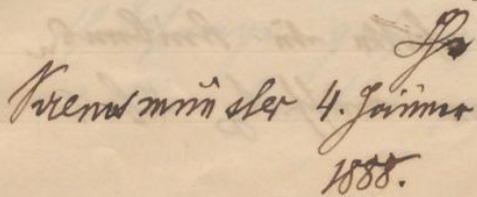 Kremsmünster 4. Jänner
1888.